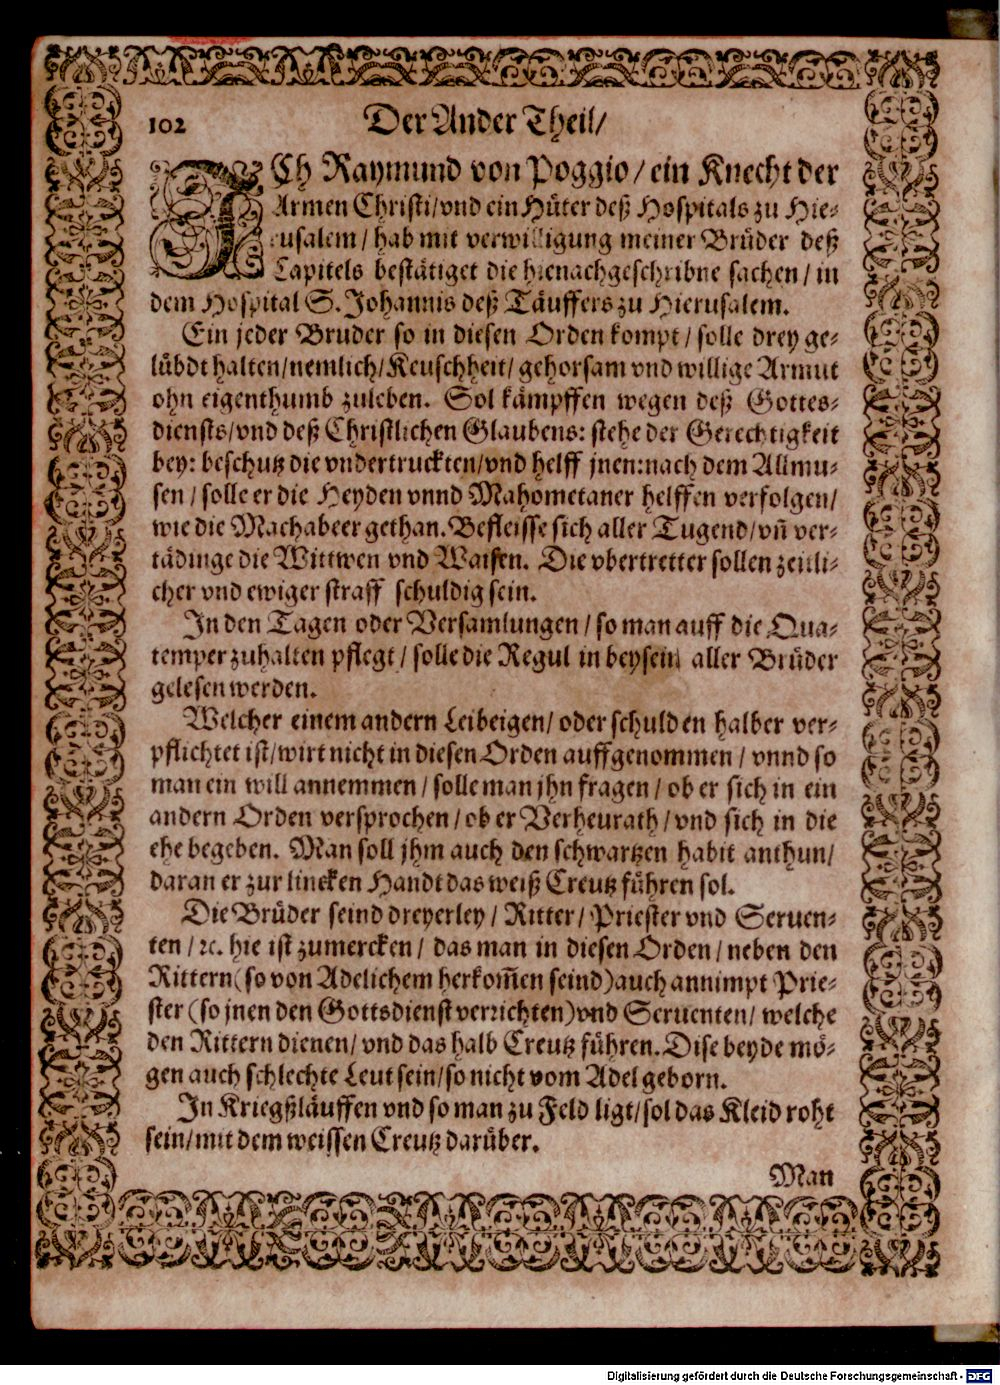 102
Der Ander Theil/
ICh Raymund von Poggio / ein Knecht der
Armen Christi/vnd ein Hüter deß Hospitals zu Hie-
rusalem / hab mit verwilligung meiner Brüder deß
Capitels bestätiget die hienachgeschribne sachen / in
dem Hospital S. Johannis deß Täuffers zu Hierusalem.
Ein jeder Bruder so in diesen Orden kompt / solle drey ge-
lübdt halten/nemlich/Keuschheit/ gehorsam vnd willige Armut
ohn eigenthumb zuleben. Sol kämpffen wegen deß Gottes-
diensts/vnd deß Christlichen Glaubens: stehe der Gerechtigkeit
bey: beschutz die vndertruckten/vnd helff jnen:nach dem Allmu-
sen / solle er die Heyden vnnd Mahometaner helffen verfolgen/
wie die Machabeer gethan. Befleisse sich aller Tugend/vn̄ ver-
tädinge die Wittwen vnd Waisen. Die vbertretter sollen zeitli-
cher vnd ewiger straff schuldig sein.
In den Tagen oder Versamlungen / so man auff die Qua-
temper zuhalten pflegt / solle die Regul in beysein aller Brüder
gelesen werden.
Welcher einem andern Leibeigen/ oder schulden halber ver-
pflichtet ist/wirt nicht in diesen Orden auffgenommen / vnnd so
man ein will annemmen / solle man jhn fragen / ob er sich in ein
andern Orden versprochen / ob er Verheurath / vnd sich in die
ehe begeben. Man soll jhm auch den schwartzen habit anthun/
daran er zur lincken Handt das weiß Creutz führen sol.
Die Brüder seind dreyerley / Ritter / Priester vnd Seruen-
ten / ꝛc. hie ist zumercken / das man in diesen Orden / neben den
Rittern (so von Adelichem herkom̄en seind) auch annimpt Prie-
ster (so jnen den Gottsdienst verrichten) vnd Seruenten/ welche
den Rittern dienen/ vnd das halb Creutz führen. Dise beyde mö-
gen auch schlechte Leut sein/so nicht vom Adel geborn.
In Kriegßläuffen vnd so man zu Feld ligt/sol das Kleid roht
sein/mit dem weissen Creutz darüber.
Man
Digitalisierung gefördert durch die Deutsche Forschungsgemeinschaft - DFG